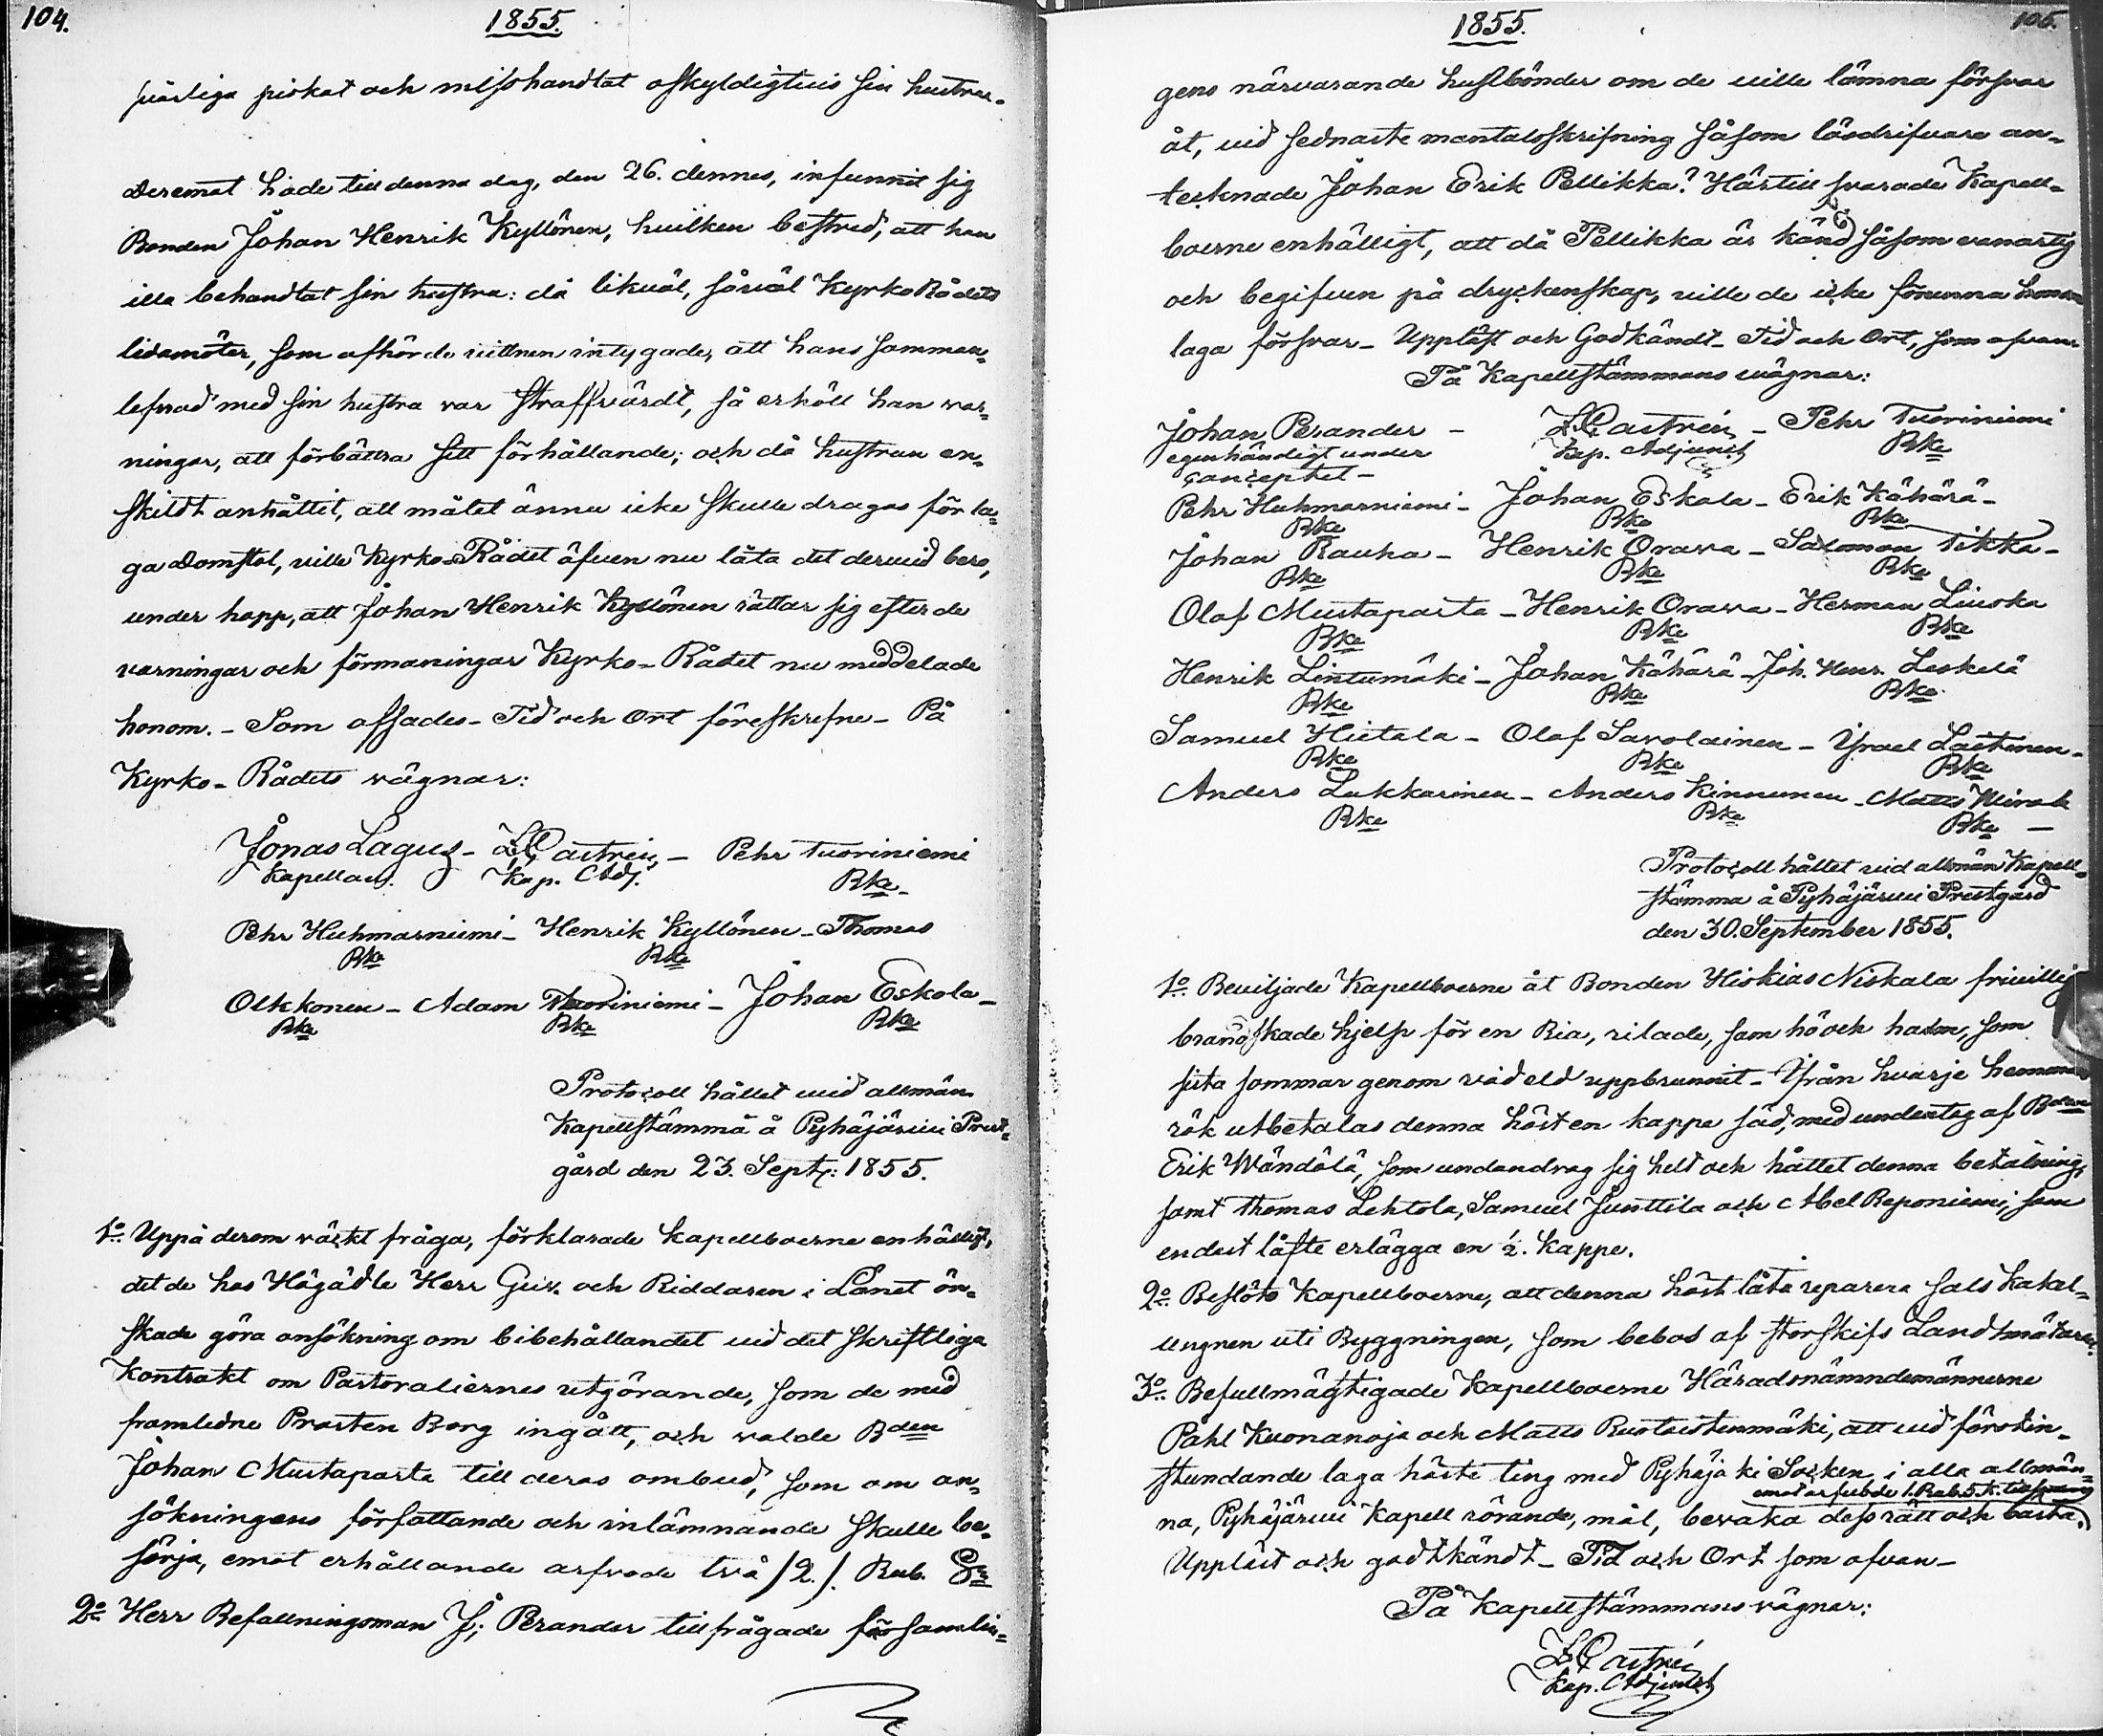 104.
1855.
piskat och misshandlat oskyldigtvis sin hustru.
Deremot hade till denna dag, den 26. dennes, infunnit sig
Bonden Johan Henrik Kyllönen, hvilken bestred, att han
illa behandlat sin hustru: då likväl, såväl KyrkoRådets
ledamöter, som afhörde vittnen intygade, att hans samman-
lefnad med sin hustru var straffvärdt, så erhöll han var-
ningar, att förbättra sitt förhållande; och då hustrun en-
skildt anhållit, att målet ännu icke skulle dragas för la-
ga Domstol, ville Kyrko-Rådet äfven nu låta det dervid bero,
under hopp, att Johan Henrik Kyllönen rättar sig efter de
varningar och förmaningar Kyrko-Rådet nu meddelade
honom. - Som afsades - Tid och Ort föreskrefne - På
Kyrko-Rådets vägnar:
Jonas Lagus - Z. Castrén - Pehr Tuoriniemi
Kapellan. Kap. Adj. Bke -
Pehr Huhmarniemi - Henrik Kyllönen - Thomas
Bke Bke
Olkkonen - Adam Tuoriniemi - Johan Eskola -
Bke Bke Bke
Protocoll hållet vid allmän
Kapellstämma å Pyhäjärvi Prest-
gård den 23. Sept: 1855.
1o Uppå derom väckt fråga, förklarade Kapellboerne enhälligt,
det de hos Högädle Herr Guv. och Riddaren i Länet ön-
skade göra ansökning om bibehållandet vid det skriftliga
Kontrakt om Pastoraliernes utgörande, som de med
framledne Prosten Borg ingått, och valde Bden
Johan Mustaparta till deras ombud, som om an-
sökningens författande och inlämnande skulle be-
sörja, emot erhållande arfvode två /2./. Rub. Sr
2o Herr Befallningsman J: Perander tillfrågade församlin-
1855.
105.
gens närvarande husbönder om de ville lämna försvar
åt, vid sednaste mantalsskrifning såsom lösdrifvare an-
tecknade Johan Erik Pellikka? Härtill svarade Kapell-
boerne enhälligt, att då Pellikka är känd såsom vanartig
och begifven på dryckenskap, ville de icke förunna honom
laga försvar - Uppläst och Godkändt - Tid och Ort, som ofvan
På Kapellstämmans vägnar:
Johan Perander - Z. Castrén - Pehr Tuoriniemi
egenhändigt under Kap. Adjunct Bke
conceptet -
Pehr Huhmarniemi - Johan Eskola - Erik Kähärä -
Bke Bke Bke
Johan Rauha - Henrik Orava - Salomon Tikka -
Bke Bke Bke
Olof Mustaparta - Henrik Orava - Herman Liuska
Bke Bke Bke
Henrik Lintumäki - Johan Kähärä - Joh. Henr. Leskelä
Bke Bke Bke
Samuel Hietala - Olof Savolainen - Israel Lastunen -
Bke Bke Bke
Anders Lukkarinen - Anders Kinnunen - Matts
Bke Bke Bke -
Protocoll hållet vid allmän Kapell-
stämma å Pyhäjärvi Prestgård
den 30. September 1855.
1o Beviljade Kapellboerne åt Bonden Hiskias Niskala frivillig
brandskade hjelp för en Ria, rilade, sam hö och halm, som
sista sommar genom vådeld uppbrunnit - Ifrån hvarje hemman
rök utbetalas denna höst en kappe säd, med undantag af Bden
Erik Wändälä, som undandrog sig helt och hållet denna betalning,
samt Thomas Lehtola, Samuel Junttila och Abel Reponiemi, som
endast låfte erlägga en ½. Kappe.
2o Beslöts Kapellboerne, att denna höst låta reparera Sals Kakel-
ungnen uti Byggningen, som bebos af storskifs Landtmätaren.
3o Befullmägtigade Kapellboerne Häradsnämndemännerne
Påhl Kuonanoja och Matts Ruotoistenmäki, att vid förstin-
stundande laga höste ting med Pyhäjoki Socken i alla allmän-
emot arfvode 1. Rub. S.
na, Pyhäjärvi Kapell rörande, mål, bevaka dess rätt och bästa.
Uppläst och godtkändt - Tid och Ort som ofvan -
På Kapellstämmans vägnar:
Z. Castrén
Kap. Adjunct